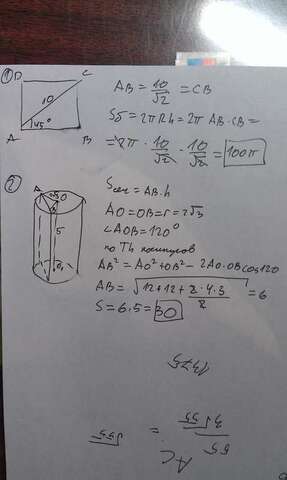 ① D C
10
45°
A B
AB = 10/√2 = CB
Sб = 2πRh = 2π AB·CB =
= 2π · 10/√2 · 10/√2 = 100π
②
A O
5
O₁
Sсеч = AB·h
AO=OB=r=2√3
∠AOB=120°
по Th косинусов
AB² = AO²+OB² − 2AO·OB cos120
AB = √(12+12+2·4·3/2) = 6
S=6·5=30
1375